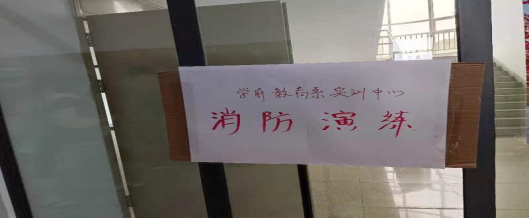 学前教育系实训中心
消防演练